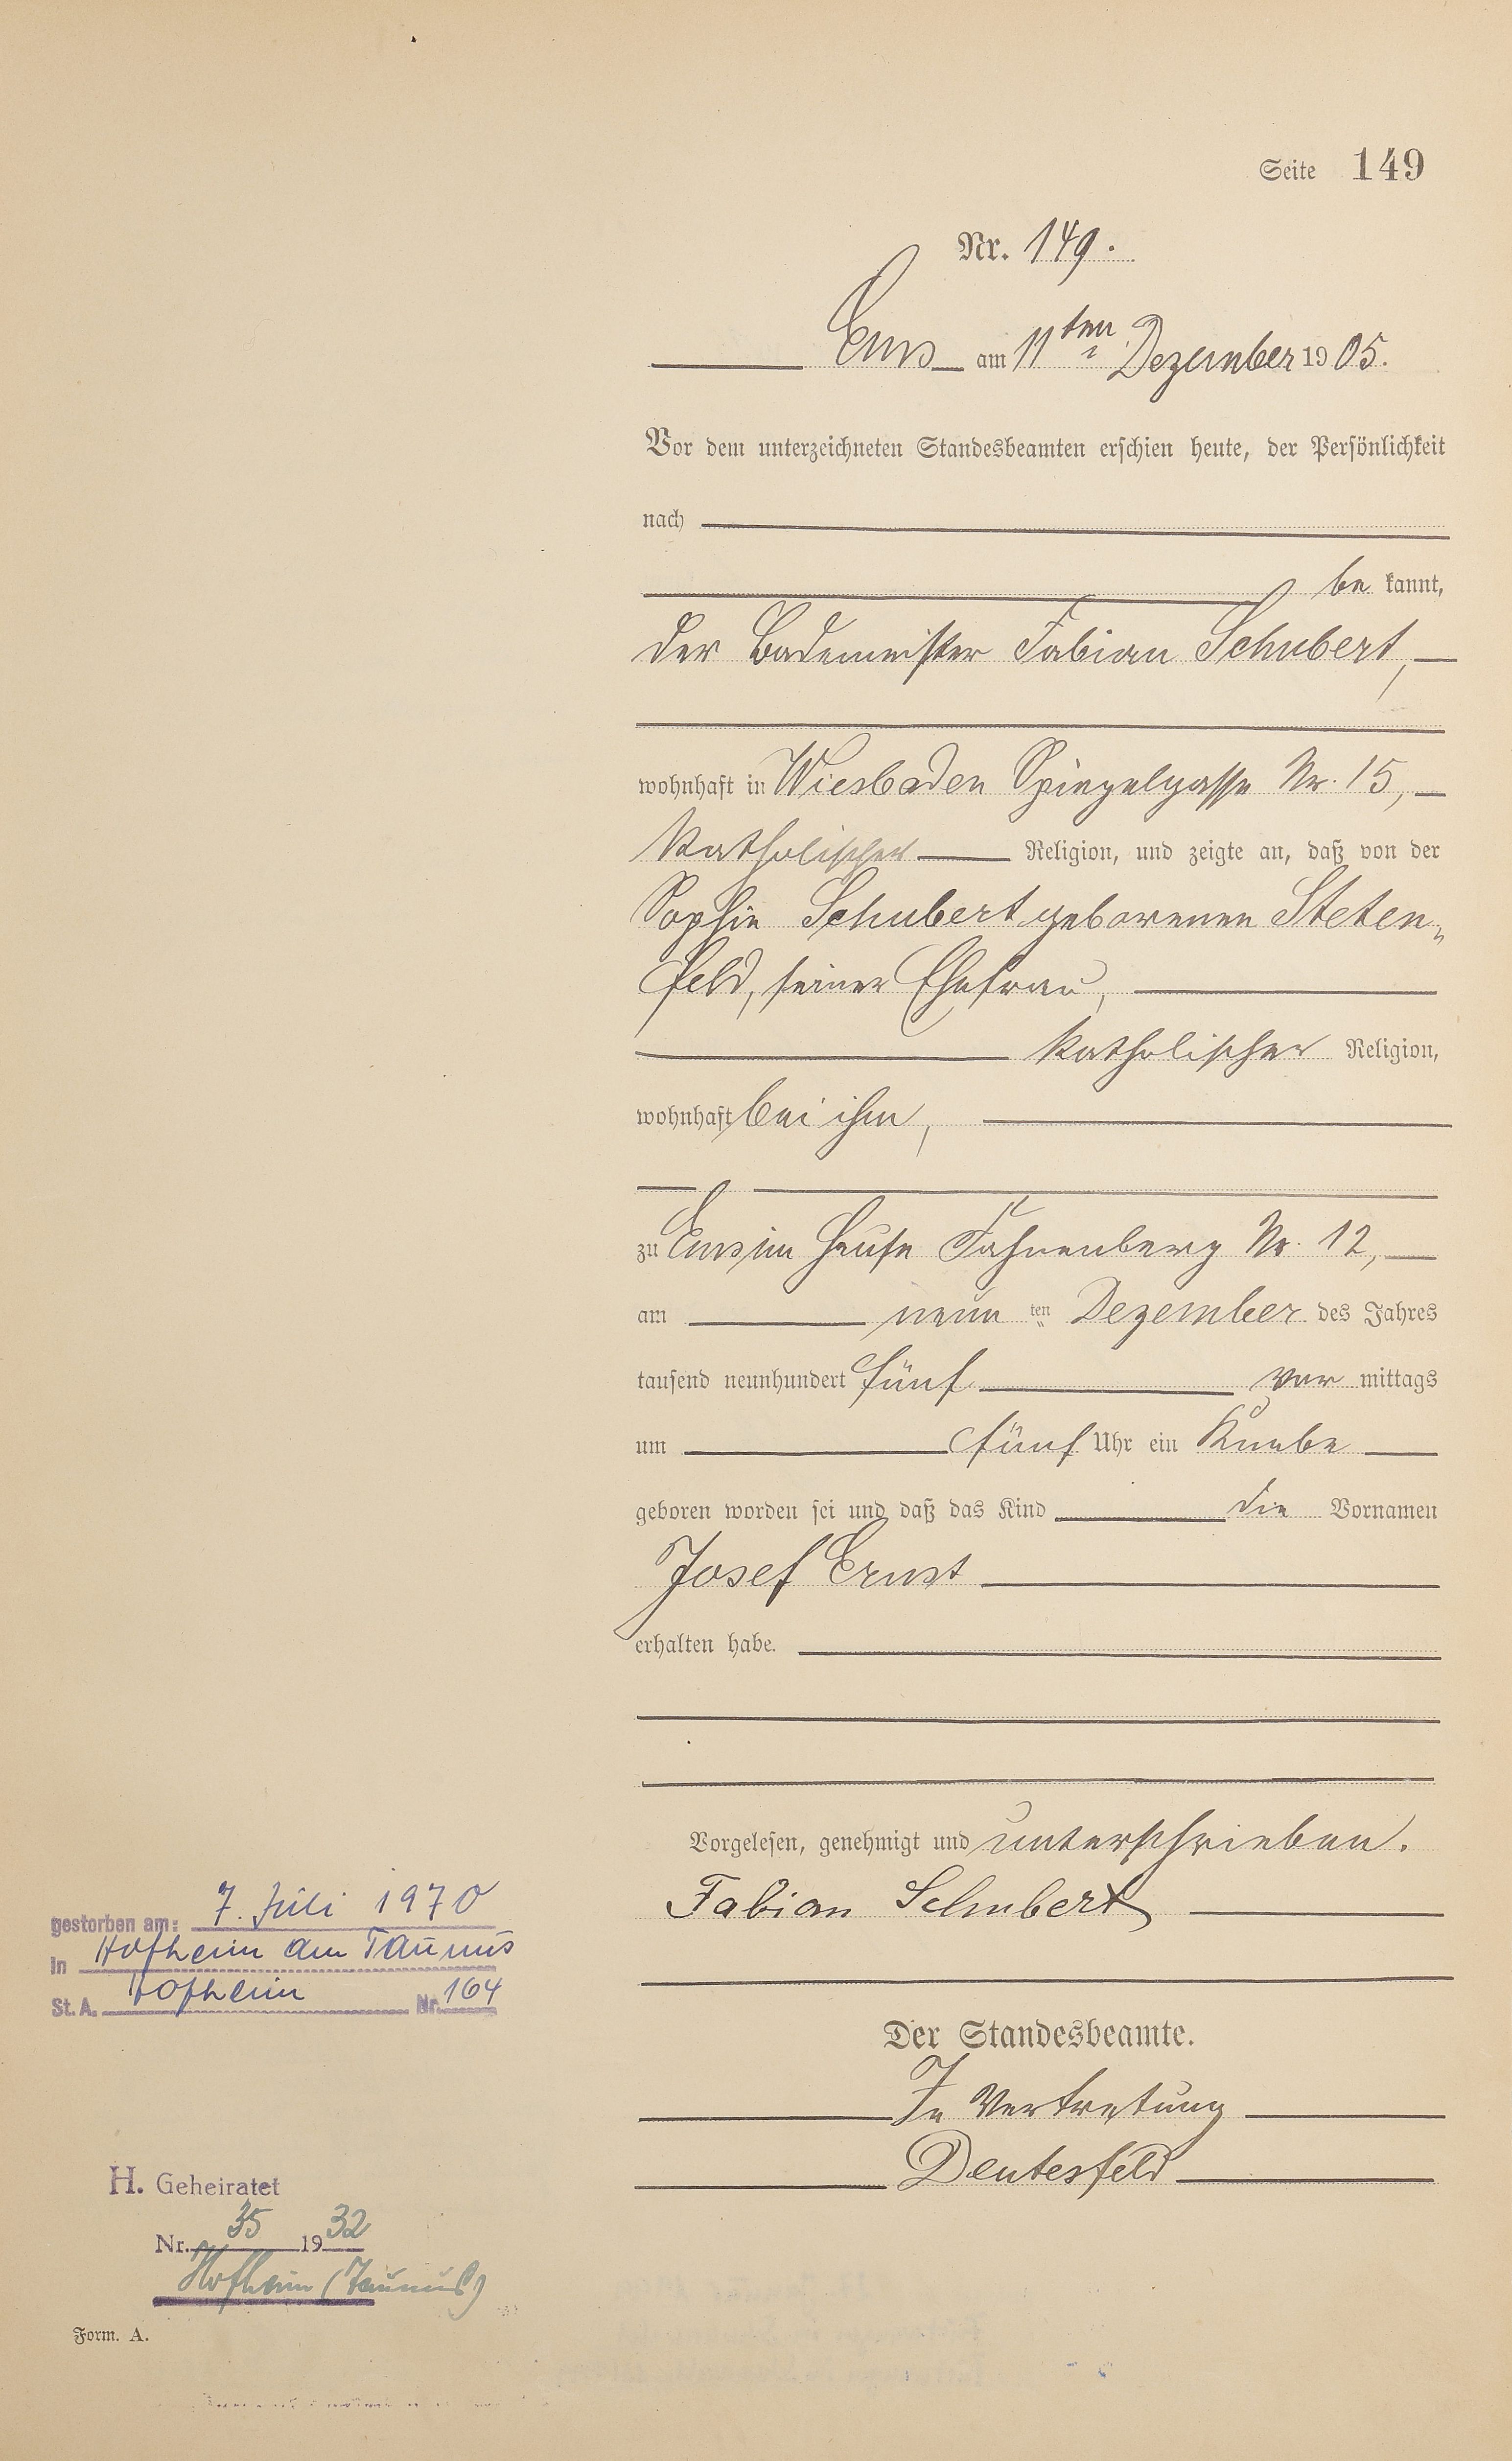 Seite 149
Nr. 149.
Ems am 11ten Dezember 1905.
Vor dem unterzeichneten Standesbeamten erschien heute, der Persönlichkeit
nach
be kannt,
der Bademeister Fabian Schubert,
wohnhaft in Wiesbaden Spiegelgasse Nr. 15,
katholischer Religion, und zeigte an, daß von der
Sophie Schubert geborenen Steten„
feld, seiner Ehefrau,
katholischer Religion,
wohnhaft bei ihm,
zu Ems im Hause Fahnenberg Nr. 12,
am neun ten Dezember des Jahres
tausend neunhundert fünf vor mittags
um fünf Uhr ein Knabe
geboren worden sei und daß das Kind die Vornamen
Josef Ernst
erhalten habe.
Vorgelesen, genehmigt und unterschrieben.
Fabian Schubert
Der Standesbeamte.
In Vertretung
Deutesfeld
gestorben am: 7. Juli 1970
in Hofheim am Taunus
St. A. Hofheim Nr. 164
H. Geheiratet
Nr. 35 1932
Hofheim (Taunus)
Form. A.